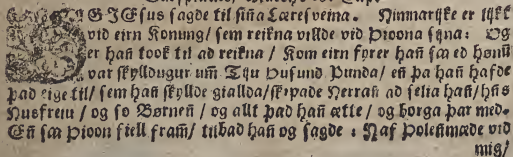 OG JEsus sagde til siña Læresveina. Himnarijke er lijkt
vid eirn Konung/ sem reikna villde vid Þioona sijna: Og
er hañ took til ad reikna / Kom eirn fyrer hañ saa ed hønū
var skylldugur um̄ Tiju Þusund Punda/ eñ þa hañ hafde
þad eige til/ sem hañ skyllde giallda/ skipade Herrañ ad selia hañ/ hñs
Husfreiu / og so Børneñ / og allt þad hañ ætte / og borga þar med.
Eñ saa Þioon fiell fram̄/ tilbad hañ og sagde : Haf Poleñmæde vid
mig/